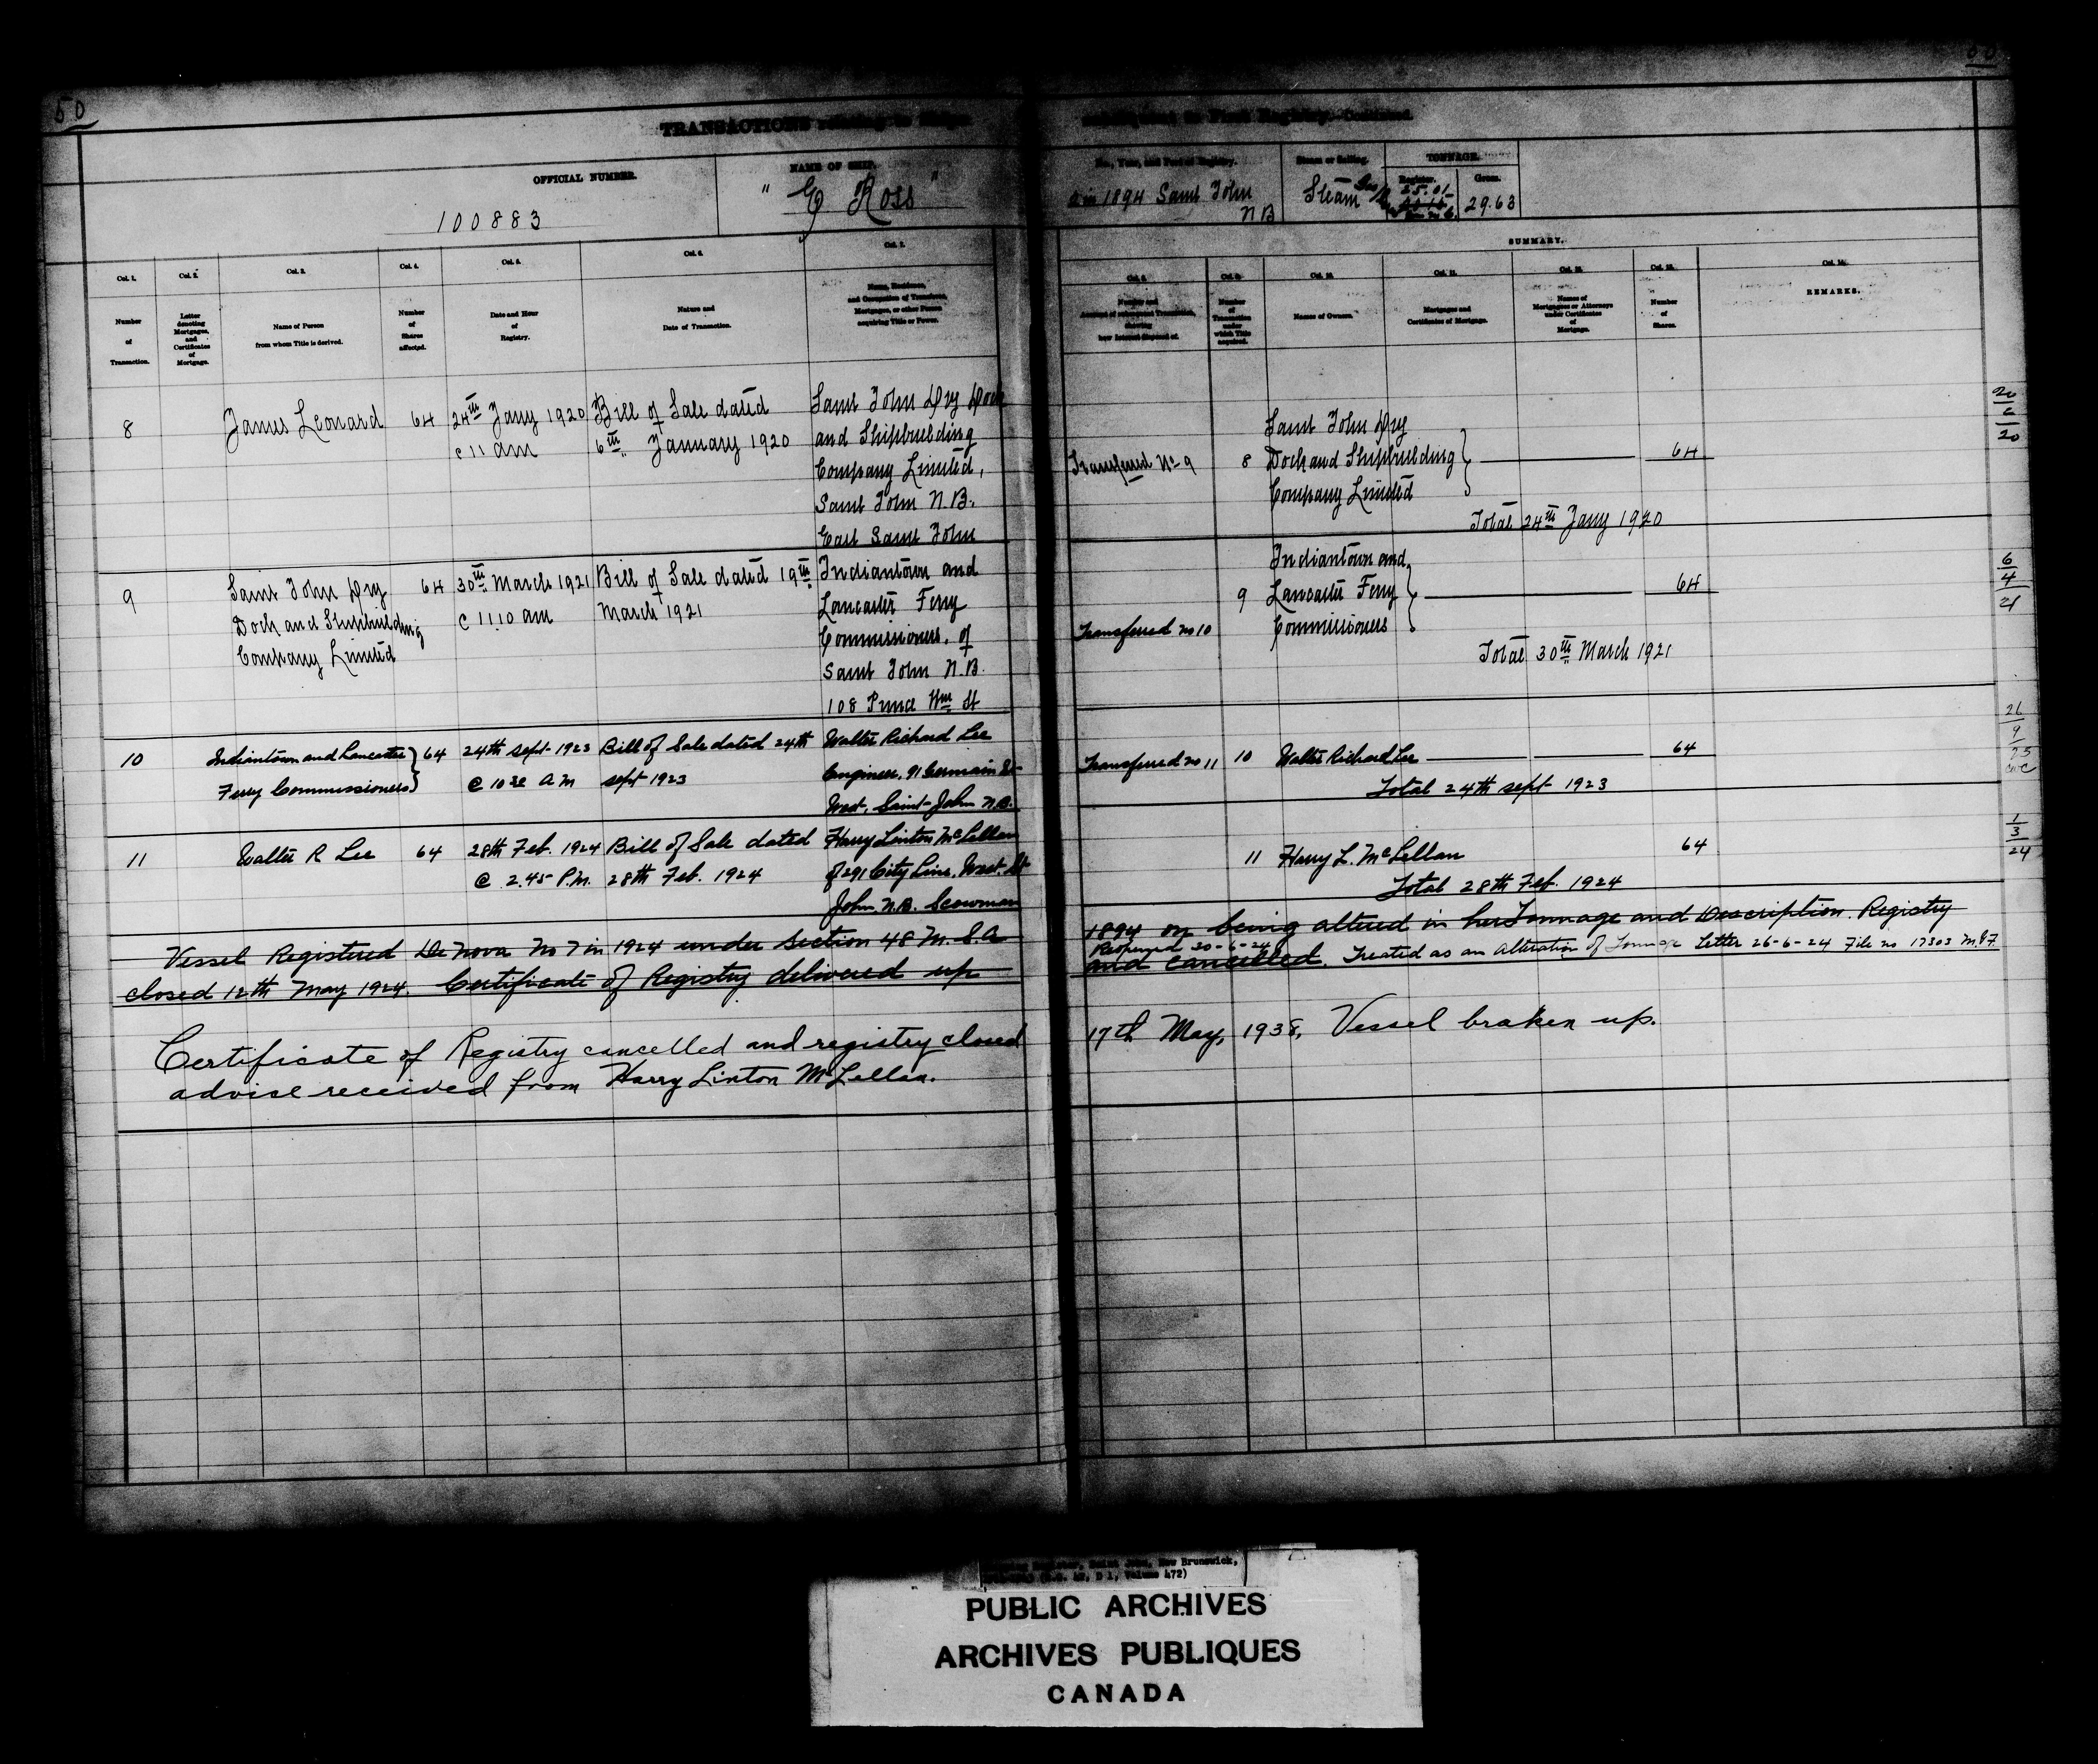 50
TRANSACTIONS relating to Ships
subsequent to First Registry.—Continued.
OFFICIAL NUMBER.
100883
NAME OF SHIP.
" E Ross "
No., Year, and Port of Registry.
in 1894 Saint John
N B
Steam or Sailing.
Steam
TONNAGE.
Register.
25.01
Gross.
29.63
SUMMARY.
Col. 1.
Number
of
Transaction.
Col. 2.
Letter
denoting
Mortgages,
and
Certificates
of
Mortgage.
Col. 3.
Name of Person
from whom Title is derived.
Col. 4.
Number
of
Shares
affected.
Col. 5.
Date and Hour
of
Registry.
Col. 6.
Nature and
Date of Transaction.
Col. 7.
Name, Residence,
and Occupation of Transferee,
Mortgagee, or other Person
acquiring Title or Power.
Col. 8.
Number and
Account of subsequent Transaction,
showing
how Interest disposed of.
Col. 9.
Number
of
Transaction
under
which Title
acquired.
Col. 10.
Names of Owners.
Col. 11.
Mortgages and
Certificates of Mortgage.
Col. 12.
Names of
Mortgagees or Attorneys
under Certificates
of
Mortgage.
Col. 13.
Number
of
Shares.
Col. 14.
REMARKS.
8 James Leonard 64 24th Jany 1920 Bill of Sale dated Saint John Dry Dock
11 am 6th January 1920 and Shipbuilding
Company Limited,
Saint John N.B.
East Saint John
Transferred No 9 8 Saint John Dry
Dock and Shipbuilding 64
Company Limited
Total 24th Jany 1920
20
6
20
9 Saint John Dry 64 30th March 1921 Bill of Sale dated 19th Indiantown and
Dock and Shipbuilding 11.10 am March 1921 Lancaster Ferry
Company Limited Commissioners, of
Saint John N.B.
108 Prince Wm St
Indiantown and
9 Lancaster Ferry 64
Transferred no 10 Commissioners
Total 30th March 1921
6
4
21
10 Indiantown and Lancaster 64 24th sept 1923 Bill of Sale dated 24th Walter Richard Lee
Ferry Commissioners @ 10 30 A M sept 1923 Engineer, 91 Germain St
West, Saint John N.B.
Transferred no 11 10 Walter Richard Lee 64
Total 24th sept 1923
26
9
11 Walter R Lee 64 28th Feb. 1924 Bill of Sale dated Harry Linton McLellan
@ 2.45 P.M. 28th Feb. 1924 of 291 City Line, West St
John, N.B. Scowman
11 Harry L. McLellan 64
Total 28th Feb. 1924
1
3
24
Vessel Registered De Nova No 7 in 1924 under Section 48 M.S.A
1894 on being altered in her Tonnage and Description. Registry
Reopened 30-6-24
closed 12th May 1924. Certificate of Registry delivered up
and cancelled. Treated as an Alteration of Tonnage Letter 26-6-24 File no 17303 M.&F.
Certificate of Registry cancelled and registry closed
17th May, 1938, Vessel braken up.
advise received from Harry Linton McLellan.
New Brunswick,
Volume 472)
PUBLIC ARCHIVES
ARCHIVES PUBLIQUES
CANADA